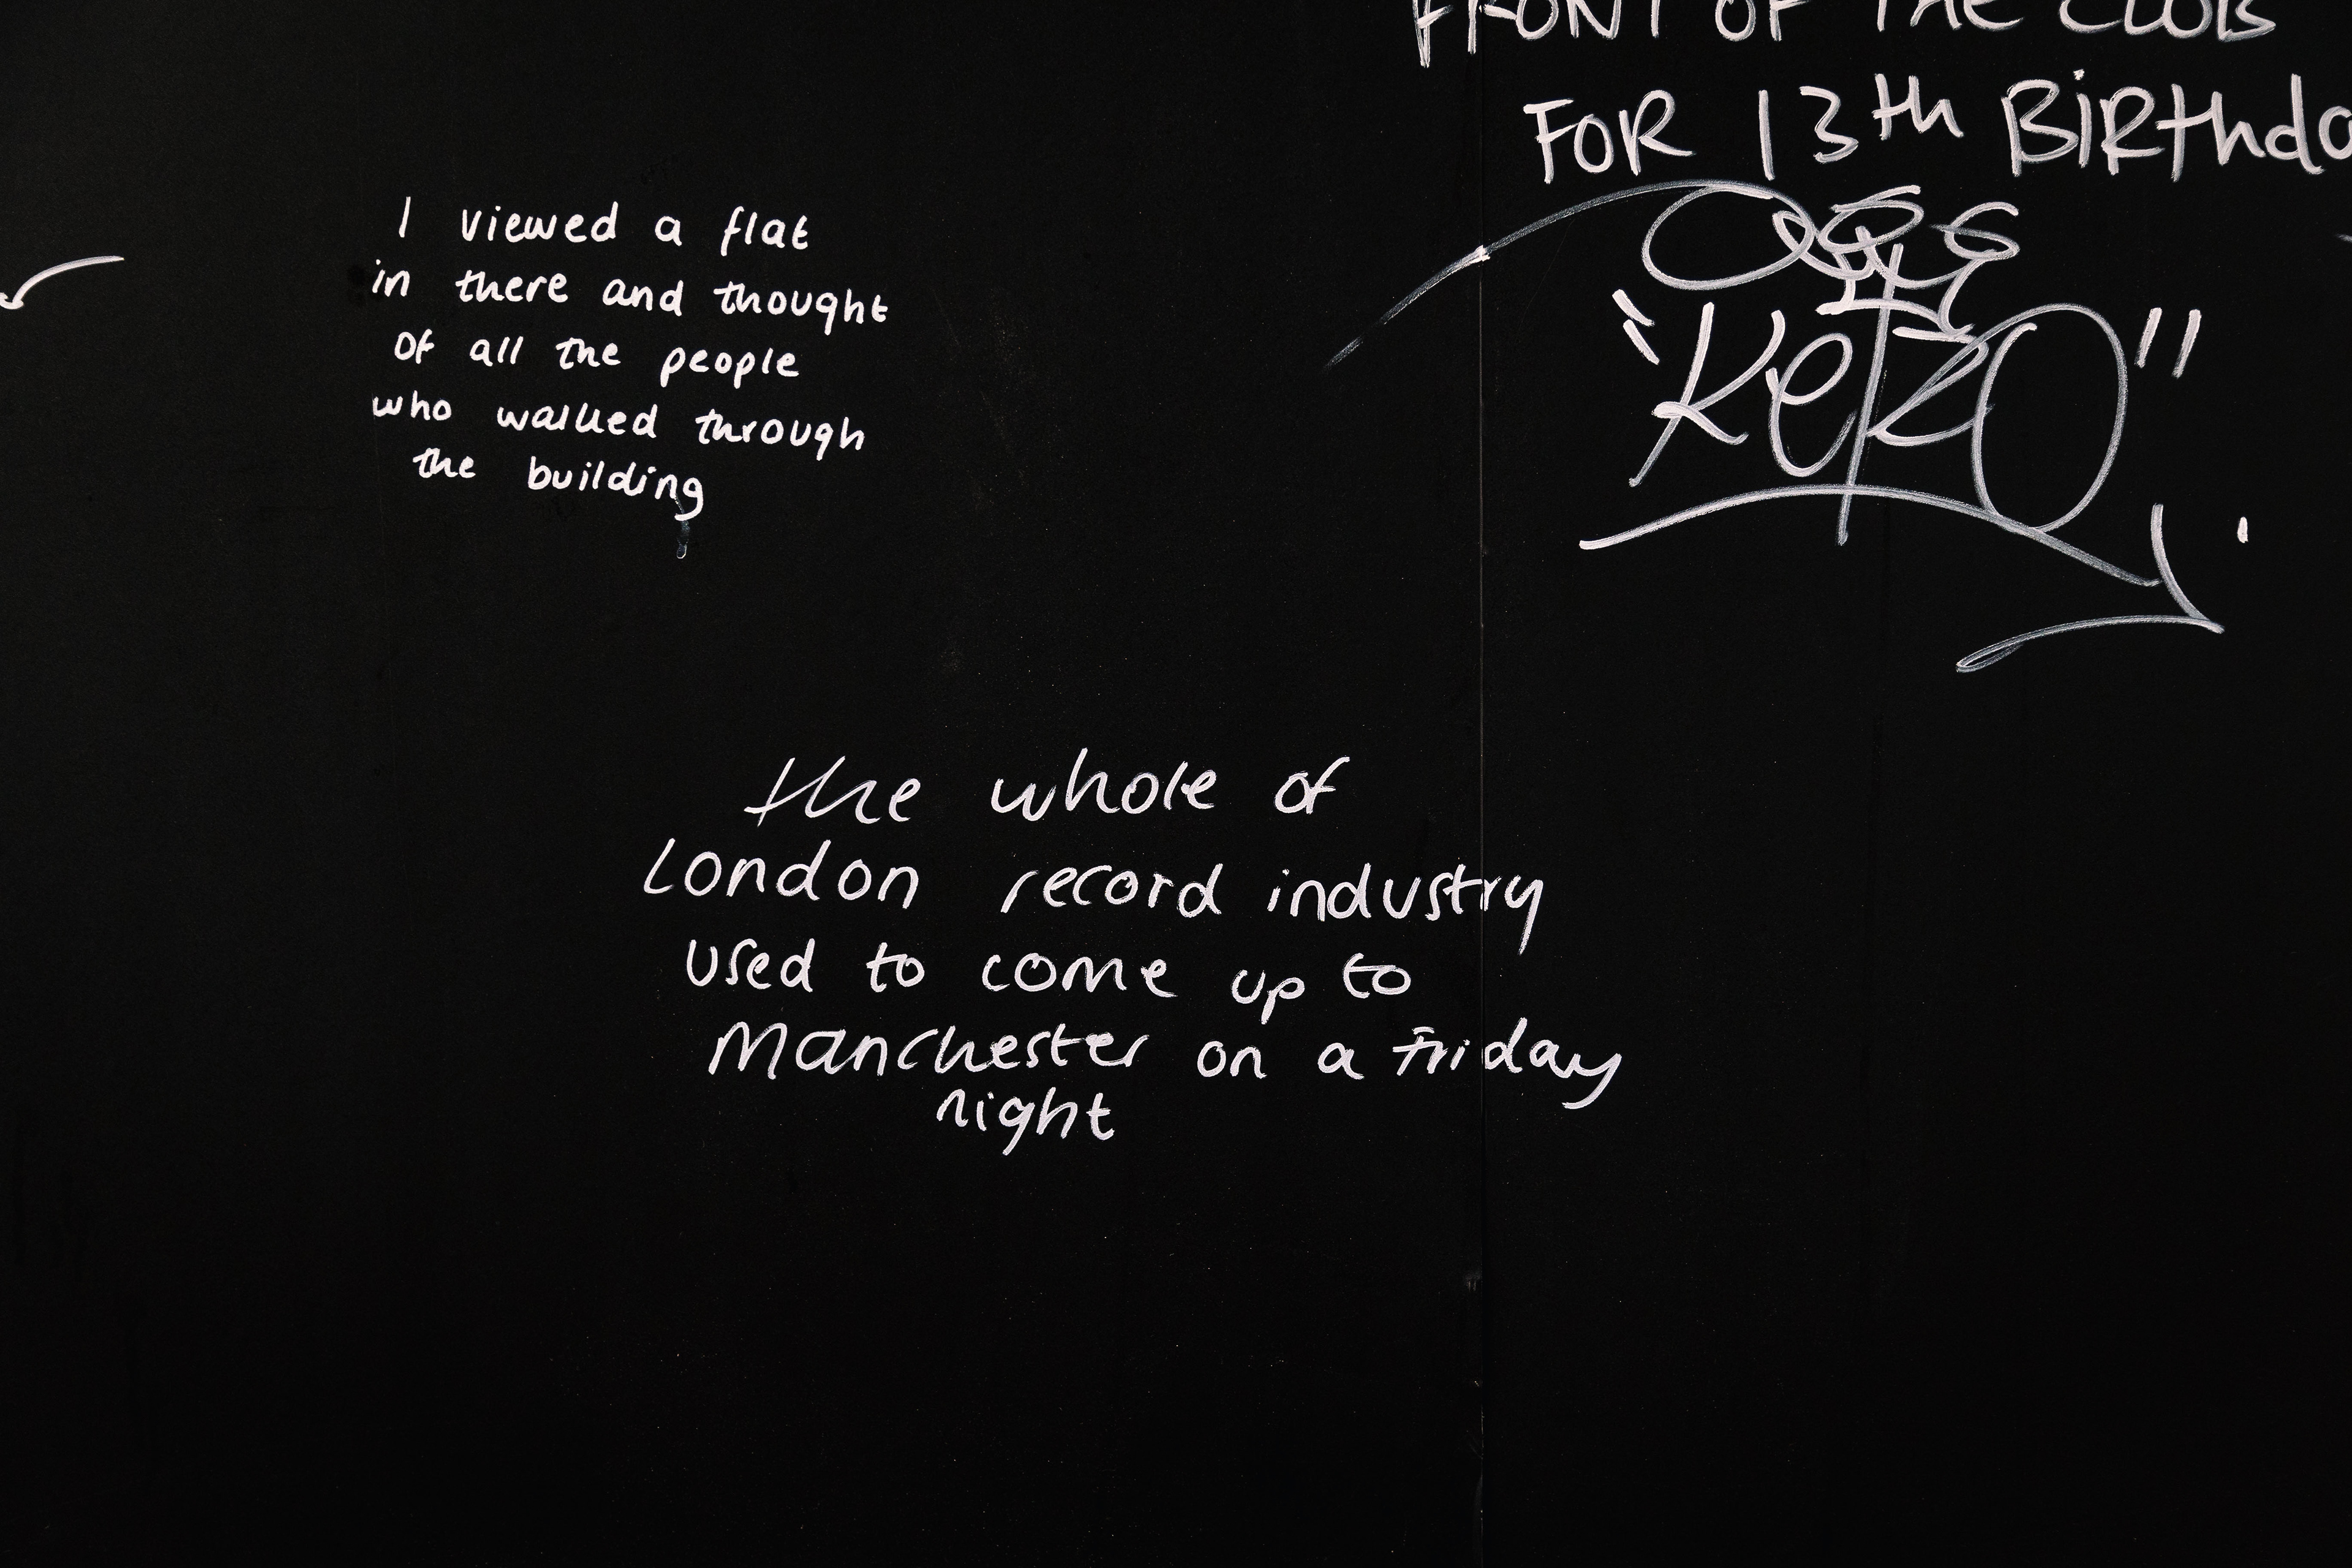 I viewed a flat
in there and thought
of all the people
who walked through
the building
the whole of
London record industry
used to come up to
Manchester on a Friday
night
FRONT OF THE CLUB
FOR 13th BiRthda